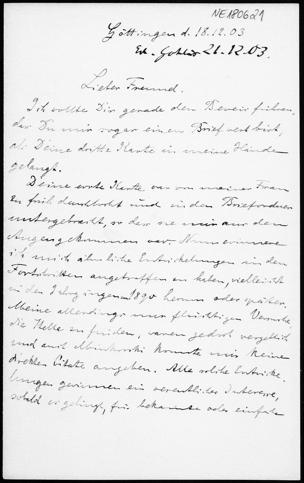 NE180621
Göttingen d. 18.12.03
21.12.03.
Lieber Freund.
Ich wollte Dir gerade den Beweis führen,
dass Du mir sogar einen Brief
als Deine dritte Karte in meine Hände
gelangt.
Deine erste Karte war von meiner Frau
zu früh und in den
so dass sie mir aus den
Augen gekommen war. Nun erinnere
ich mich ähnliche Entwickelungen in den
Fortschritten angetroffen zu haben, vielleicht
in den Jahrgängen 1890 herum oder später.
Meine allerdings nur flüchtigen Versuche
die Stelle zu finden, waren jedoch vergeblich
und auch Minkowski konnte mir keine
direkten Citate angeben. Alle solche Entwicke-
lungen gewinnen ein wesentliches Interesse,
sobald es gelingt, für bekannte oder einfache